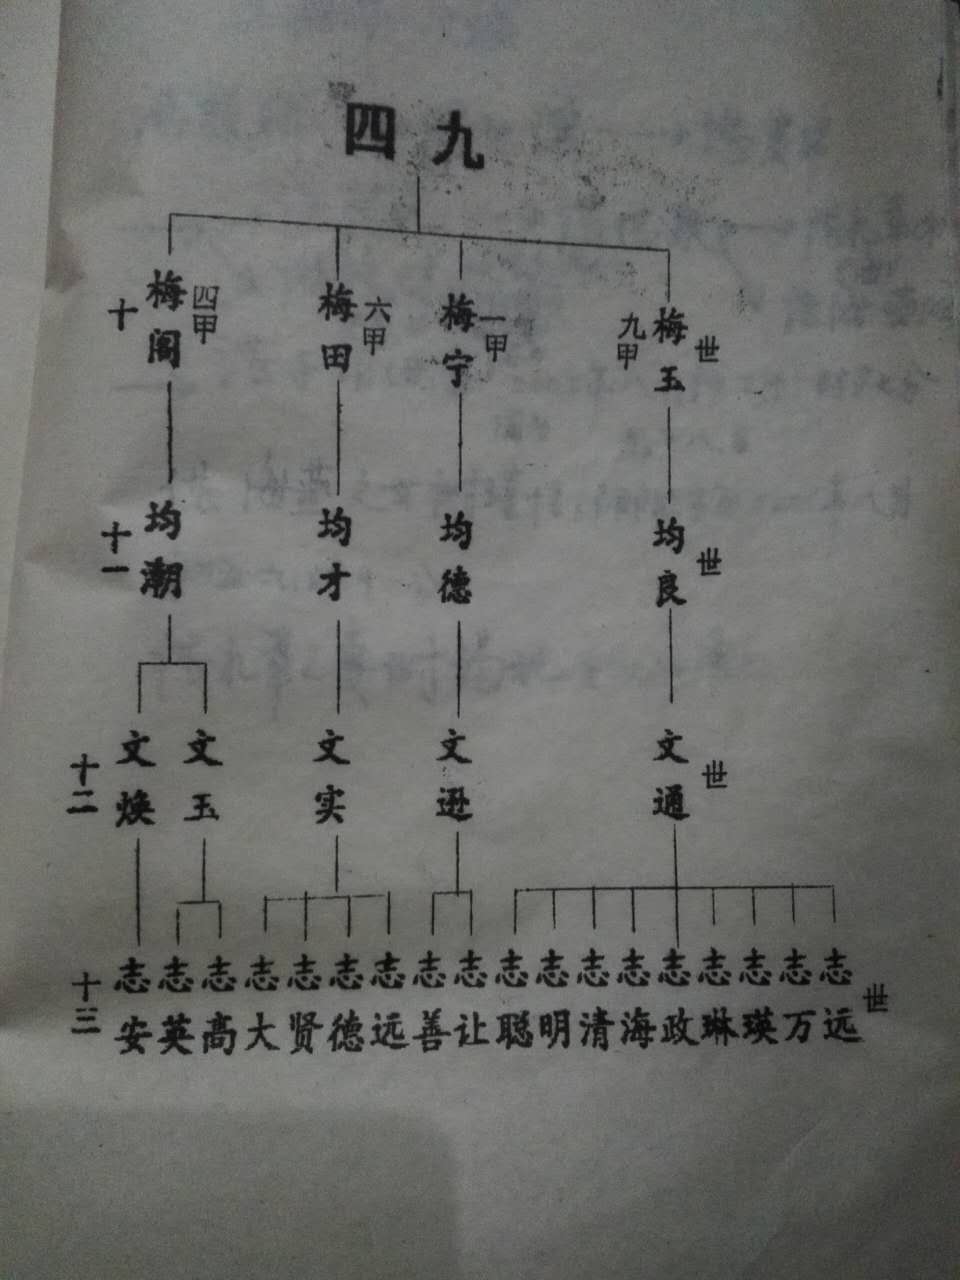 四九
十 梅阁 四甲 梅田 六甲 梅宁 一甲 九甲 梅玉 世
十一 均潮 均才 均德 均良 世
十二 文焕 文玉 文实 文逊 文通 世
十三 志安 志英 志高 志大 志贤 志德 志远 志善 志让 志聪 志明 志清 志海 志政 志琳 志瑛 志万 志远 世